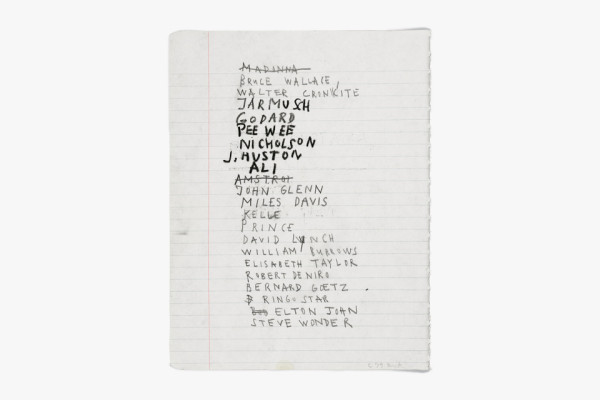 MADINNA
BRUCE WALLACE,
WALTER CRONKITE
JARMUSH
GODARD
PEE WEE
NICHOLSON
J, HUSTON
ALI
AMSTROI
JOHN GLENN
MILES DAVIS
KELLE
PRINCE
DAVID LYNCH
WILLIAM BURROWS
ELISABETH TAYLOR
ROBERT DE NIRO
BERNARD GOETZ .
B RINGO STAR
ELTON JOHN
STEVE WONDER